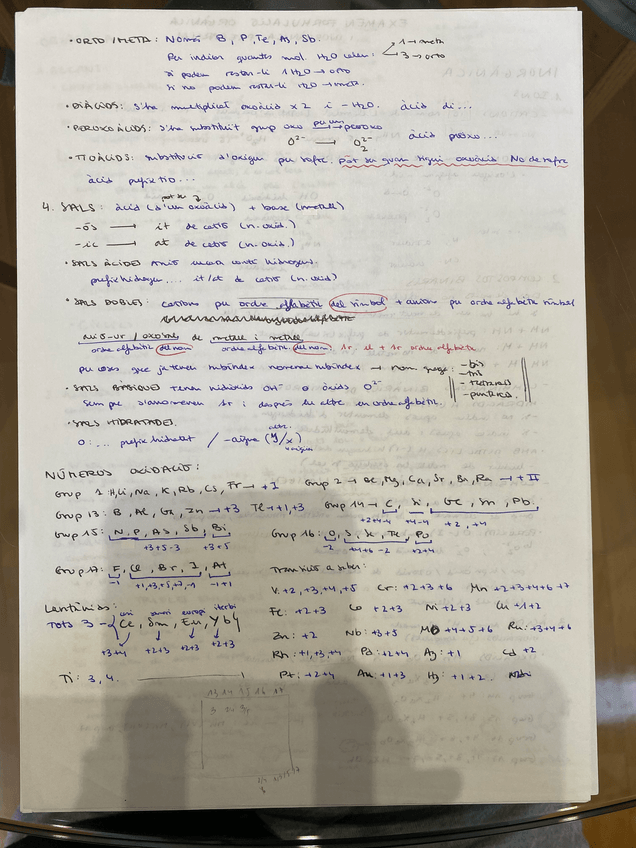 · ORTO/META: Només B, P, Te, As, Sb.
Per indicar quantes mol. H2O calen: 1→meta
3→orto
si podem restar-li 1 H2O → orto
si no podem restar-li H2O → meta.
· DIÀCIDS: S'ha multiplicat oxoàcid x2 i -H2O. àcid di...
· PEROXOÀCIDS: S'ha substituit grup oxo per un peroxo
O²⁻ → O₂²⁻ àcid peroxo...
· TIOÀCIDS: substitució d'oxigen per sofre. Pot ser quan tigui oxoàcid No de sofre
àcid prefix tio...
4. SALS: àcid (d'un oxoàcid) + base (metall)
pot ser
-ós → it de catió (n. oxid.)
-ic → at de catió (n. oxid.)
· SALS ÀCIDES Anió encara conté hidrogen.
prefix hidrogen... it/at de catió (n. oxid)
· SALS DOBLES: cations per ordre alfabètic del símbol + anions per ordre alfabètic símbol
de metall i metall
ordre alfabètic del nom ordre alfabètic del nom
per coses que ja tenen subíndex → -bis
-tris
-tetrakis
-pentakis
· SALS BÀSIQUES Tenen hidròxids OH⁻ o àcids O²⁻
Sempre s'anomenen 1r i després els altres en ordre alfabètic.
· SALS HIDRATADES.
O: ... prefix hidratat / -aigua (y/x)
NÚMEROS OXIDACIÓ:
Grup 1: H, Li, Na, K, Rb, Cs, Fr → +I Grup 2 → Be, Mg, Ca, Sr, Ba, Ra → +II
Grup 13: B, Al, Ga, Zn → +3 Tl → +1,+3 Grup 14 → C, Si, Ge, Sn, Pb.
+2+4-4 +4-4 +2,+4
Grup 15: N, P, As, Sb, Bi Grup 16: O, S, Se, Te, Po
+3+5-3 +3+5 -2 +4+6-2 +2+4
Grup 17: F, Cl, Br, I, At Transició a saber:
-1 +1,+3,+5,+7,-1 -1+1
V: +2,+3,+4,+5 Cr: +2+3+6 Mn +2+3+4+6+7
Lantànids: ceri samari europi iterbi Fe: +2+3 Co +2+3 Ni +2+3 Cu +1+2
Tots 3 - {Ce, Sm, Eu, Yb}
+3+4 +2+3 +2+3 +2+3
Zn: +2 Nb: +3+5 Mo +4+5+6 Ru: +3+4+6
Rh: +1,+3,+4 Pd: +2+4 Ag: +1 Cd +2
Ti: 3,4. Pt: +2+4 Au: +1+3 Hg: +1+2
13 14 15 16 17